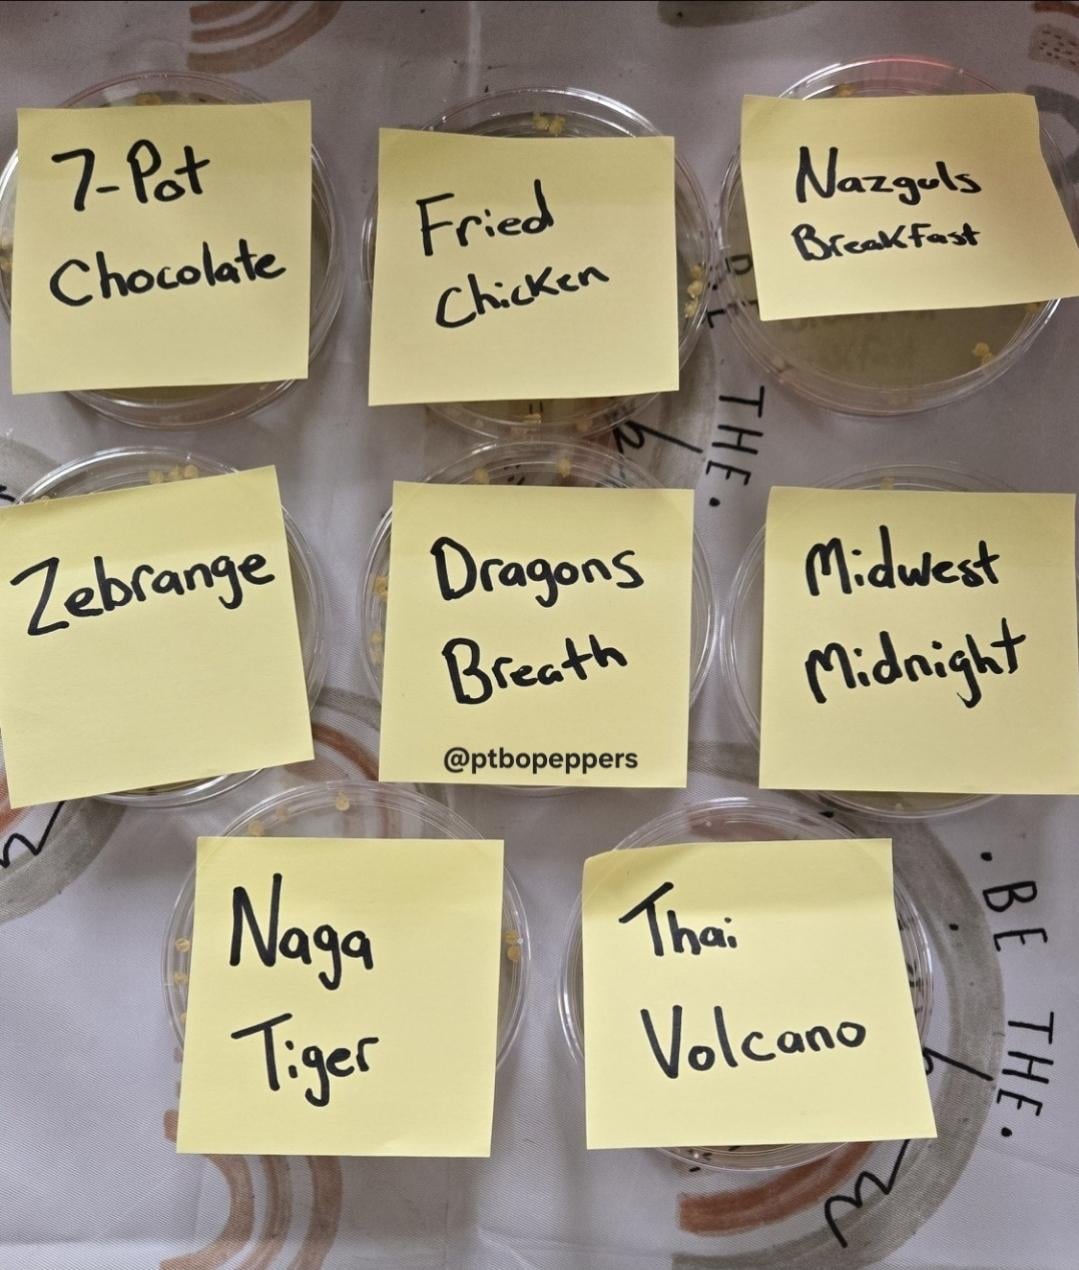 7-Pot
Chocolate
Fried
Chicken
Nazguls
Breakfast
Zebrange
Dragons
Breath
@ptbopeppers
Midwest
Midnight
Naga
Tiger
Thai
Volcano
THE.
.BE THE.